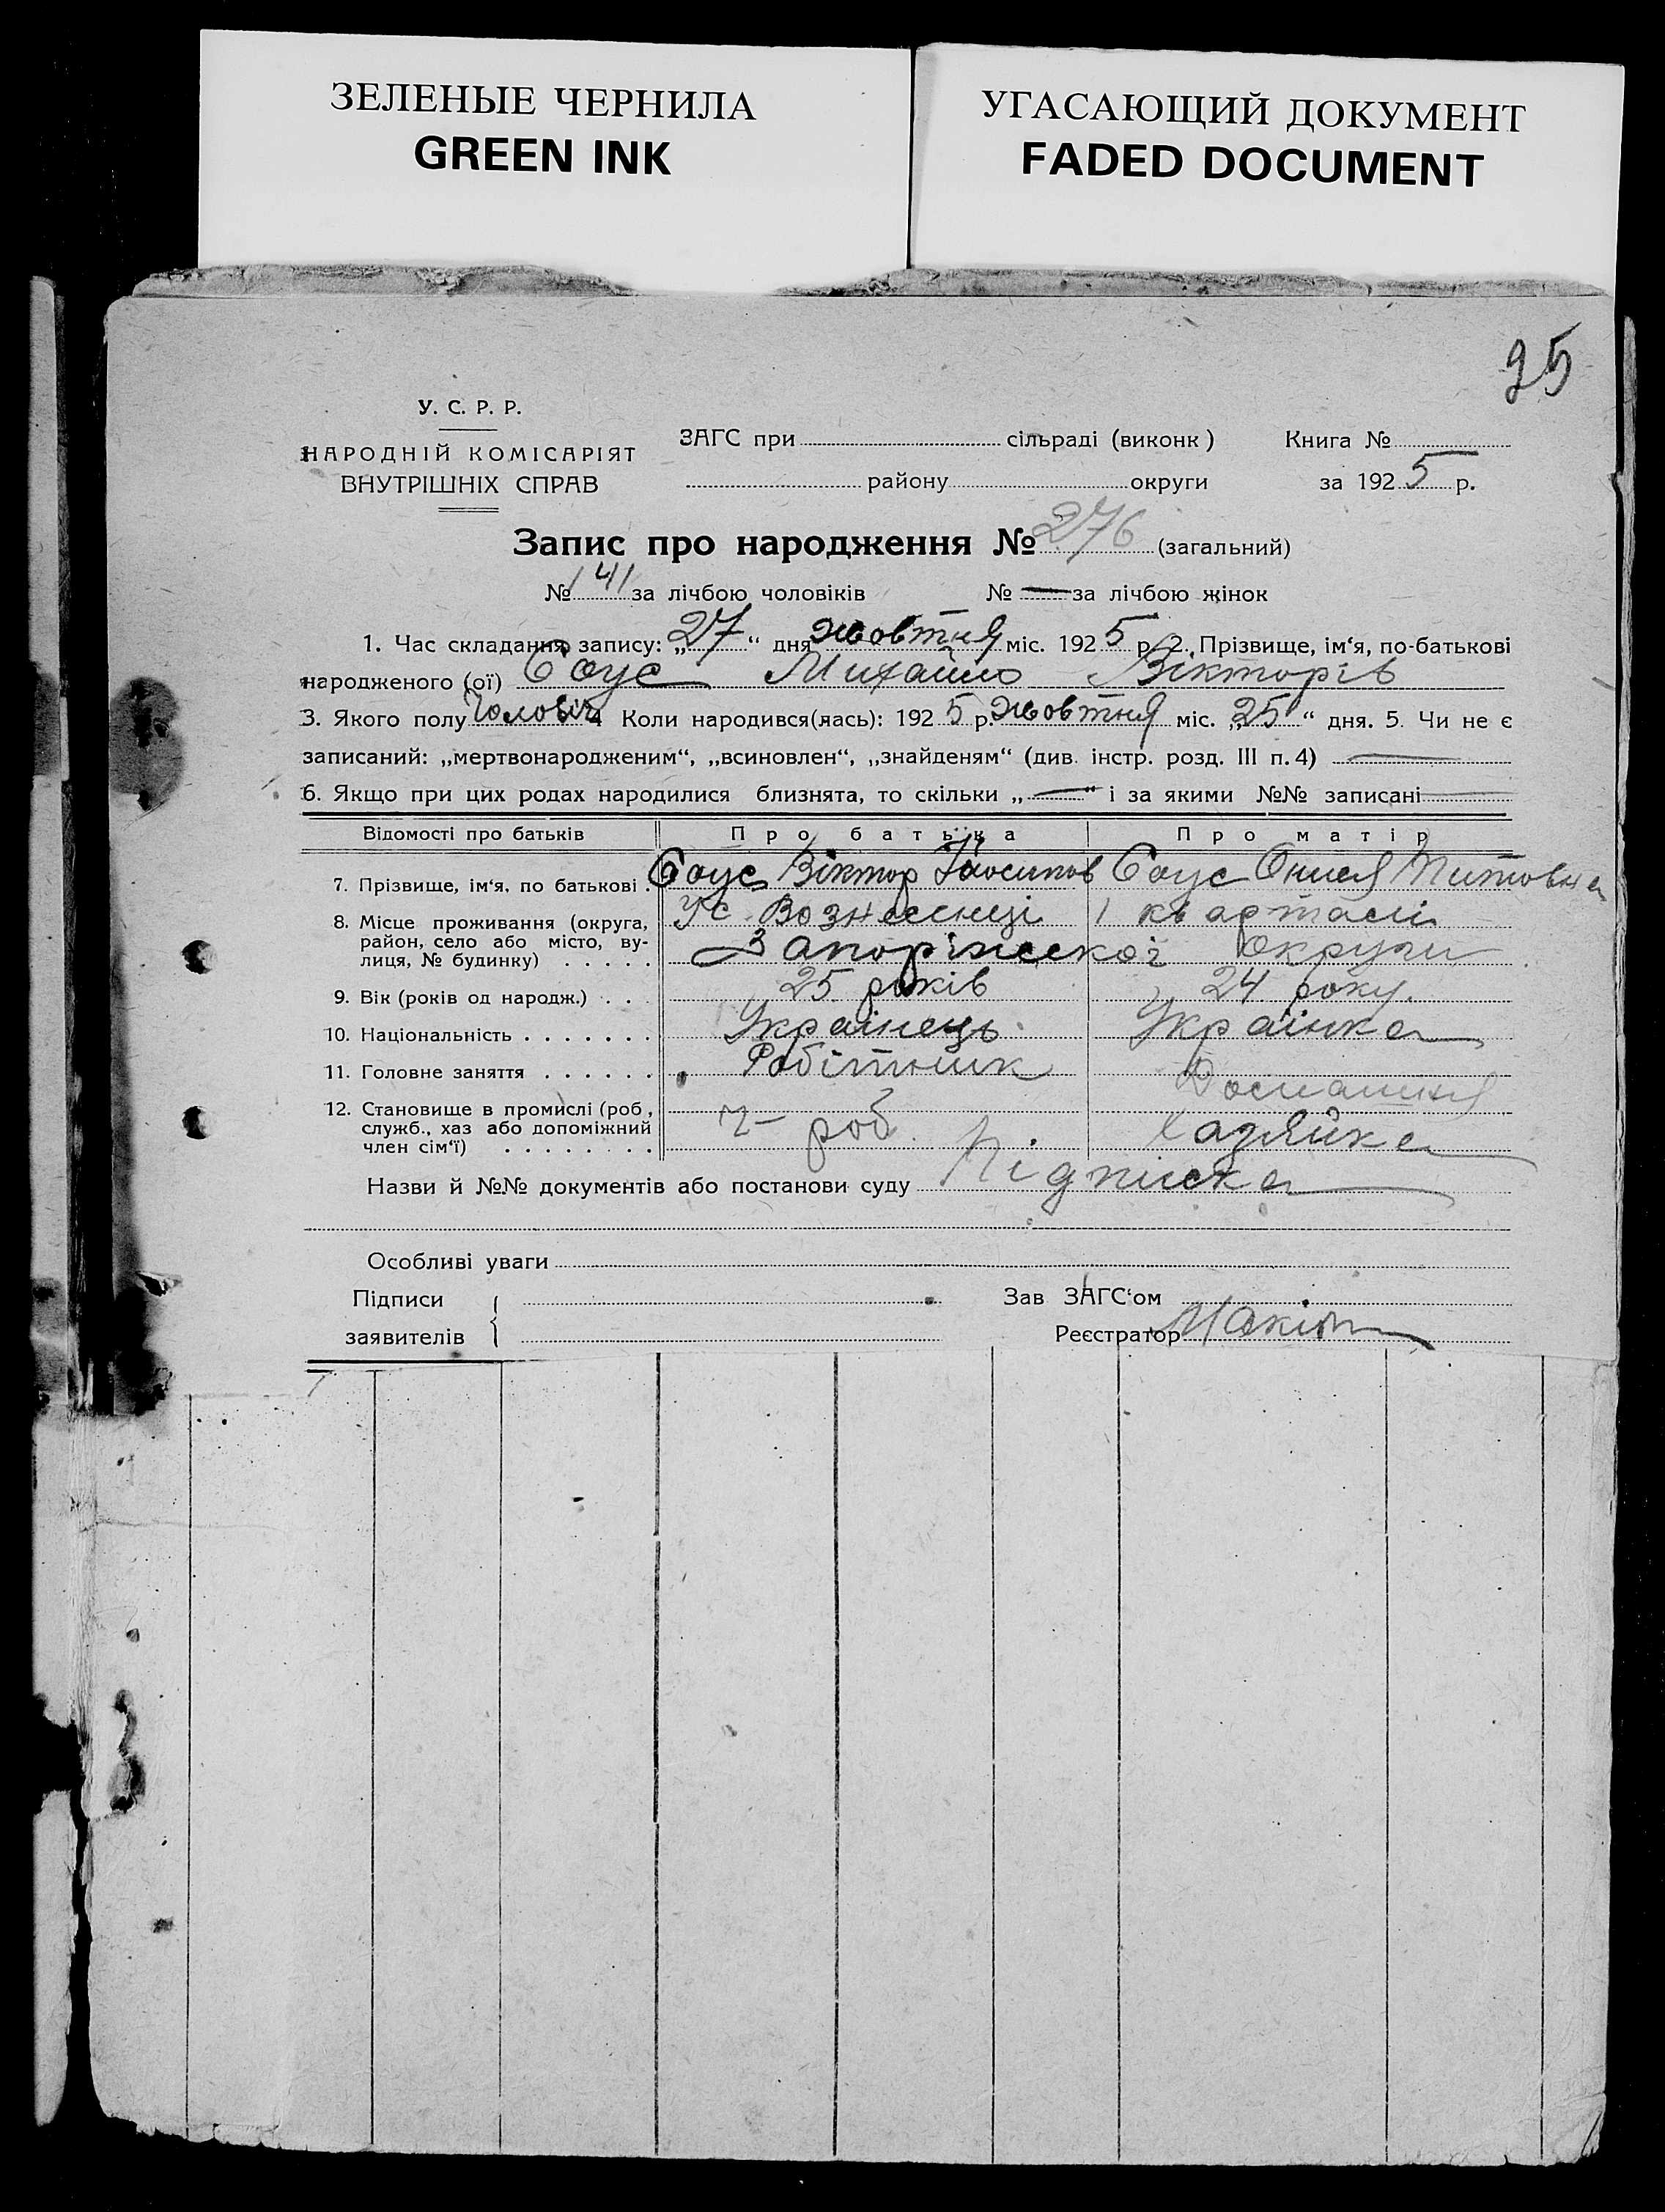 ЗЕЛЕНЫЕ ЧЕРНИЛА
GREEN INK
УГАСАЮЩИЙ ДОКУМЕНТ
FADED DOCUMENT
У. С. Р. Р.
НАРОДНІЙ КОМІСАРІЯТ
ВНУТРІШНІХ СПРАВ
ЗАГС при сільраді (виконк)
району округи
Книга №
за 1925 р.
Запис про народження № 276 (загальний)
№ 141 за лічбою чоловіків № — за лічбою жінок
1. Час складання запису: „27“ дня жовтня міс. 1925 р. 2. Прізвище, ім‘я, по-батькові
народженого (ої) Саус Михайло Вікторів
3. Якого полу Чоловіч 4 Коли народився(лась): 1925 р. жовтня міс. „25“ дня. 5. Чи не є
записаний: „мертвонародженим“, „всиновлен“, „знайденям“ (див. інстр. розд. III п. 4) —
6. Якщо при цих родах народилися близнята, то скільки „—“ і за якими №№ записані —
Відомості про батьків Про батька Про матір
7. Прізвище, ім‘я, по батькові . Саус Віктор Саус Титовна
8. Місце проживання (округа, район, село або місто, вулиця, № будинку) . . . . . У с. Вознесенці 1 кварталі
Запоріжської округи
9. Вік (років од народж.) . . . 25 років 24 року.
10. Національність . . . . . . . Українець Українка
11. Головне заняття . . . . . . Робітник Домашня
12. Становище в промислі (роб, служб., хаз або допоміжний член сім‘ї) . . . . . . . . роб. Хазяйка
Назви й №№ документів або постанови суду Підписка
Особливі уваги
Підписи
заявителів
Зав ЗАГС‘ом
Реєстратор